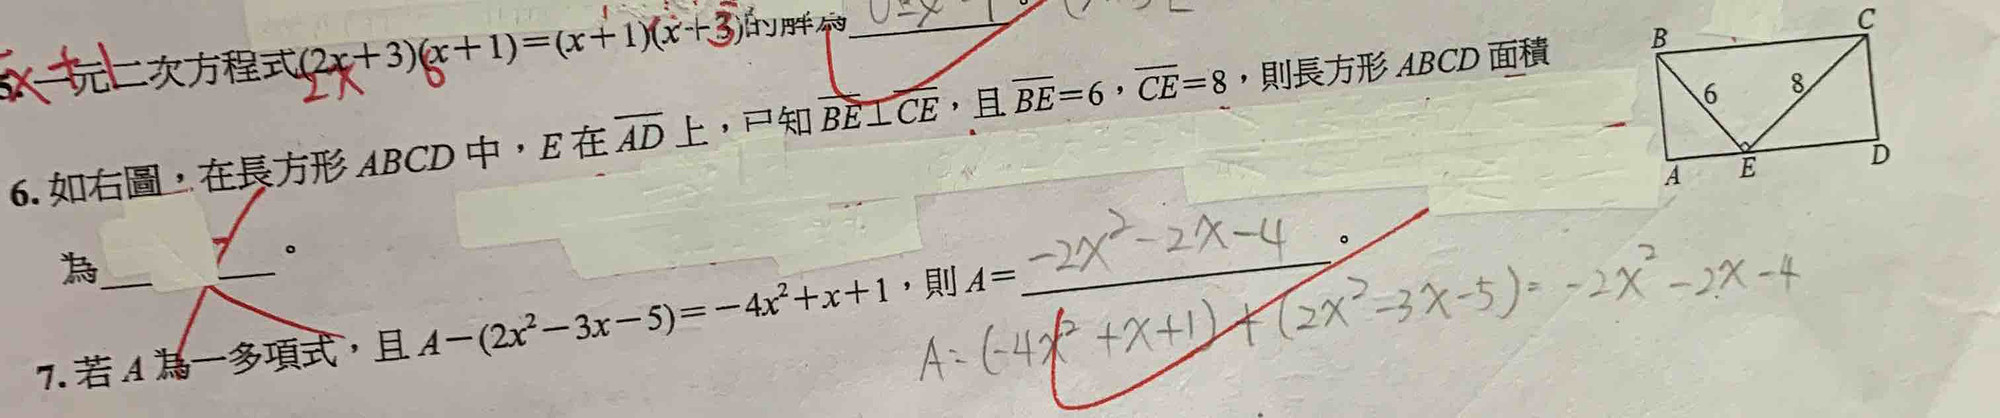 一元二次方程式(2x+3)(x+1)=(x+1)(x+3)的解為
2x 6
6. 如右圖，在長方形 ABCD 中，E 在 AD 上，已知 BE⊥CE，且 BE=6，CE=8，則長方形 ABCD 面積
為 。
B C
6 8
A E D
7. 若 A 為一多項式，且 A-(2x²-3x-5)=-4x²+x+1，則 A= -2x²-2x-4 。
A=(-4x²+x+1)+(2x²-3x-5)=-2x²-2x-4